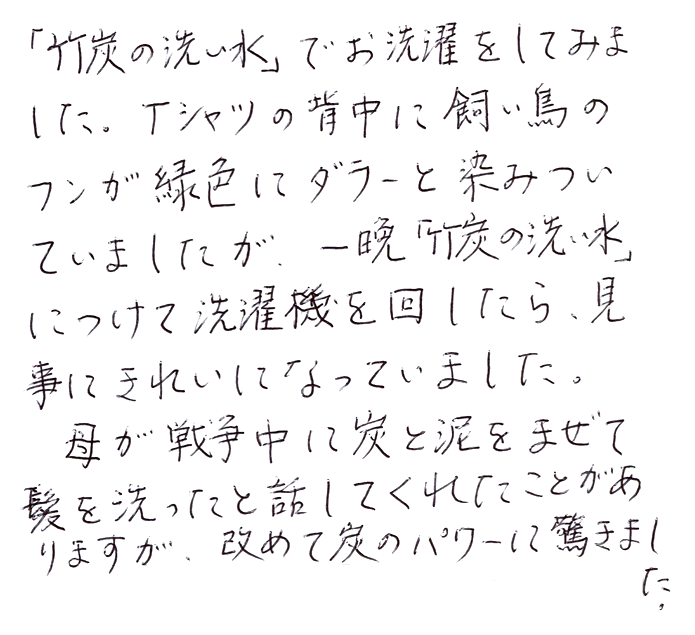 「竹炭の洗い水」でお洗濯をしてみま
した。Tシャツの背中に飼い鳥の
フンが緑色にダラーと染みつい
ていましたが、一晩「竹炭の洗い水」
につけて洗濯機を回したら、見
事にきれいになっていました。
母が戦争中に炭と泥をまぜて
髪を洗ったと話してくれたことがあ
りますが、改めて炭のパワーに驚きまし
た。